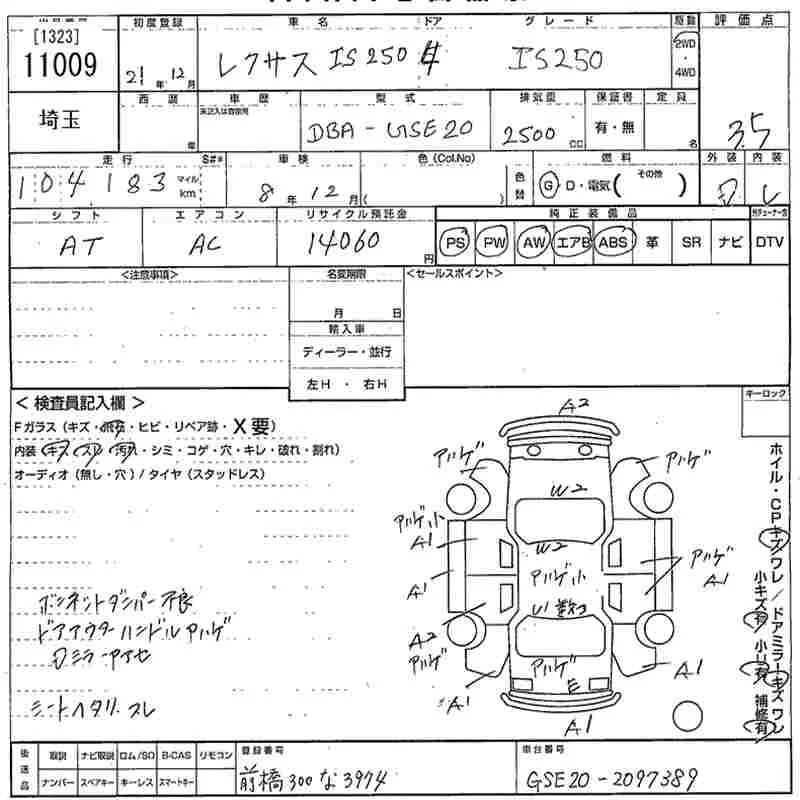 [1323]
11009
初度登録
21年 12月
車名 ドア グレード
レクサス IS250 4 IS250
駆動
2WD
4WD
評価点
3.5
埼玉
西暦
年
車歴
未記入は自家用
型式
DBA-GSE20
排気量
2500 CC
保証書
有・無
定員
名
走行 S#*
104183 マイル km
車検
8年 12月
色(Col.No)
( )
色替
燃料
G・D・電気( その他 )
外装 内装
D
シフト
AT
エアコン
AC
リサイクル預託金
14060 円
純正装備品
PS PW AW エアB ABS 革 SR ナビ DTV
<注意事項>
名変期限
月 日
輸入車
ディーラー・並行
左H ・ 右H
<セールスポイント>
<検査員記入欄>
Fガラス (キズ・飛石・ヒビ・リペア跡・X要)
内装 (キズ・スレ・汚れ・シミ・コゲ・穴・キレ・破れ・割れ)
オーディオ (無し・穴) / タイヤ (スタッドレス)
ボンネットダンパー不良
ドアアウターハンドルアハゲ
シートヘタリ.スレ
キーロック
ホイル・CPキズワレ/ドアミラーキズワレ
小キズ有 小凹有 補修有
A2
アハゲ アハゲ
W2
アハゲ小
A1
W2
アハゲ小
アハゲ
A1
A1
U1 数コ
A2
アハゲ
アハゲ
E
A1
A1
A1
後送品
取説 ナビ取説 ロム/SD B-CAS リモコン
ナンバー スペアキー キーレス スマートキー
登録番号
前橋 300 な 3974
車台番号
GSE20-2097389